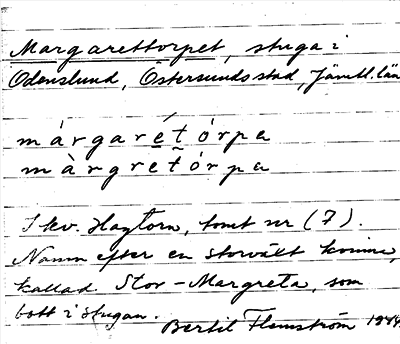 Margarettorpet, stuga i
Odenslund, Östersunds stad, Jämtl. län
màrgarétórpa
màrgretórpa
I kv. Hagtorn, tomt nr (7).
Namn efter en storväxt kvinna,
kallad Stor-Margreta, som
bott i stugan.
Bertil Flemström